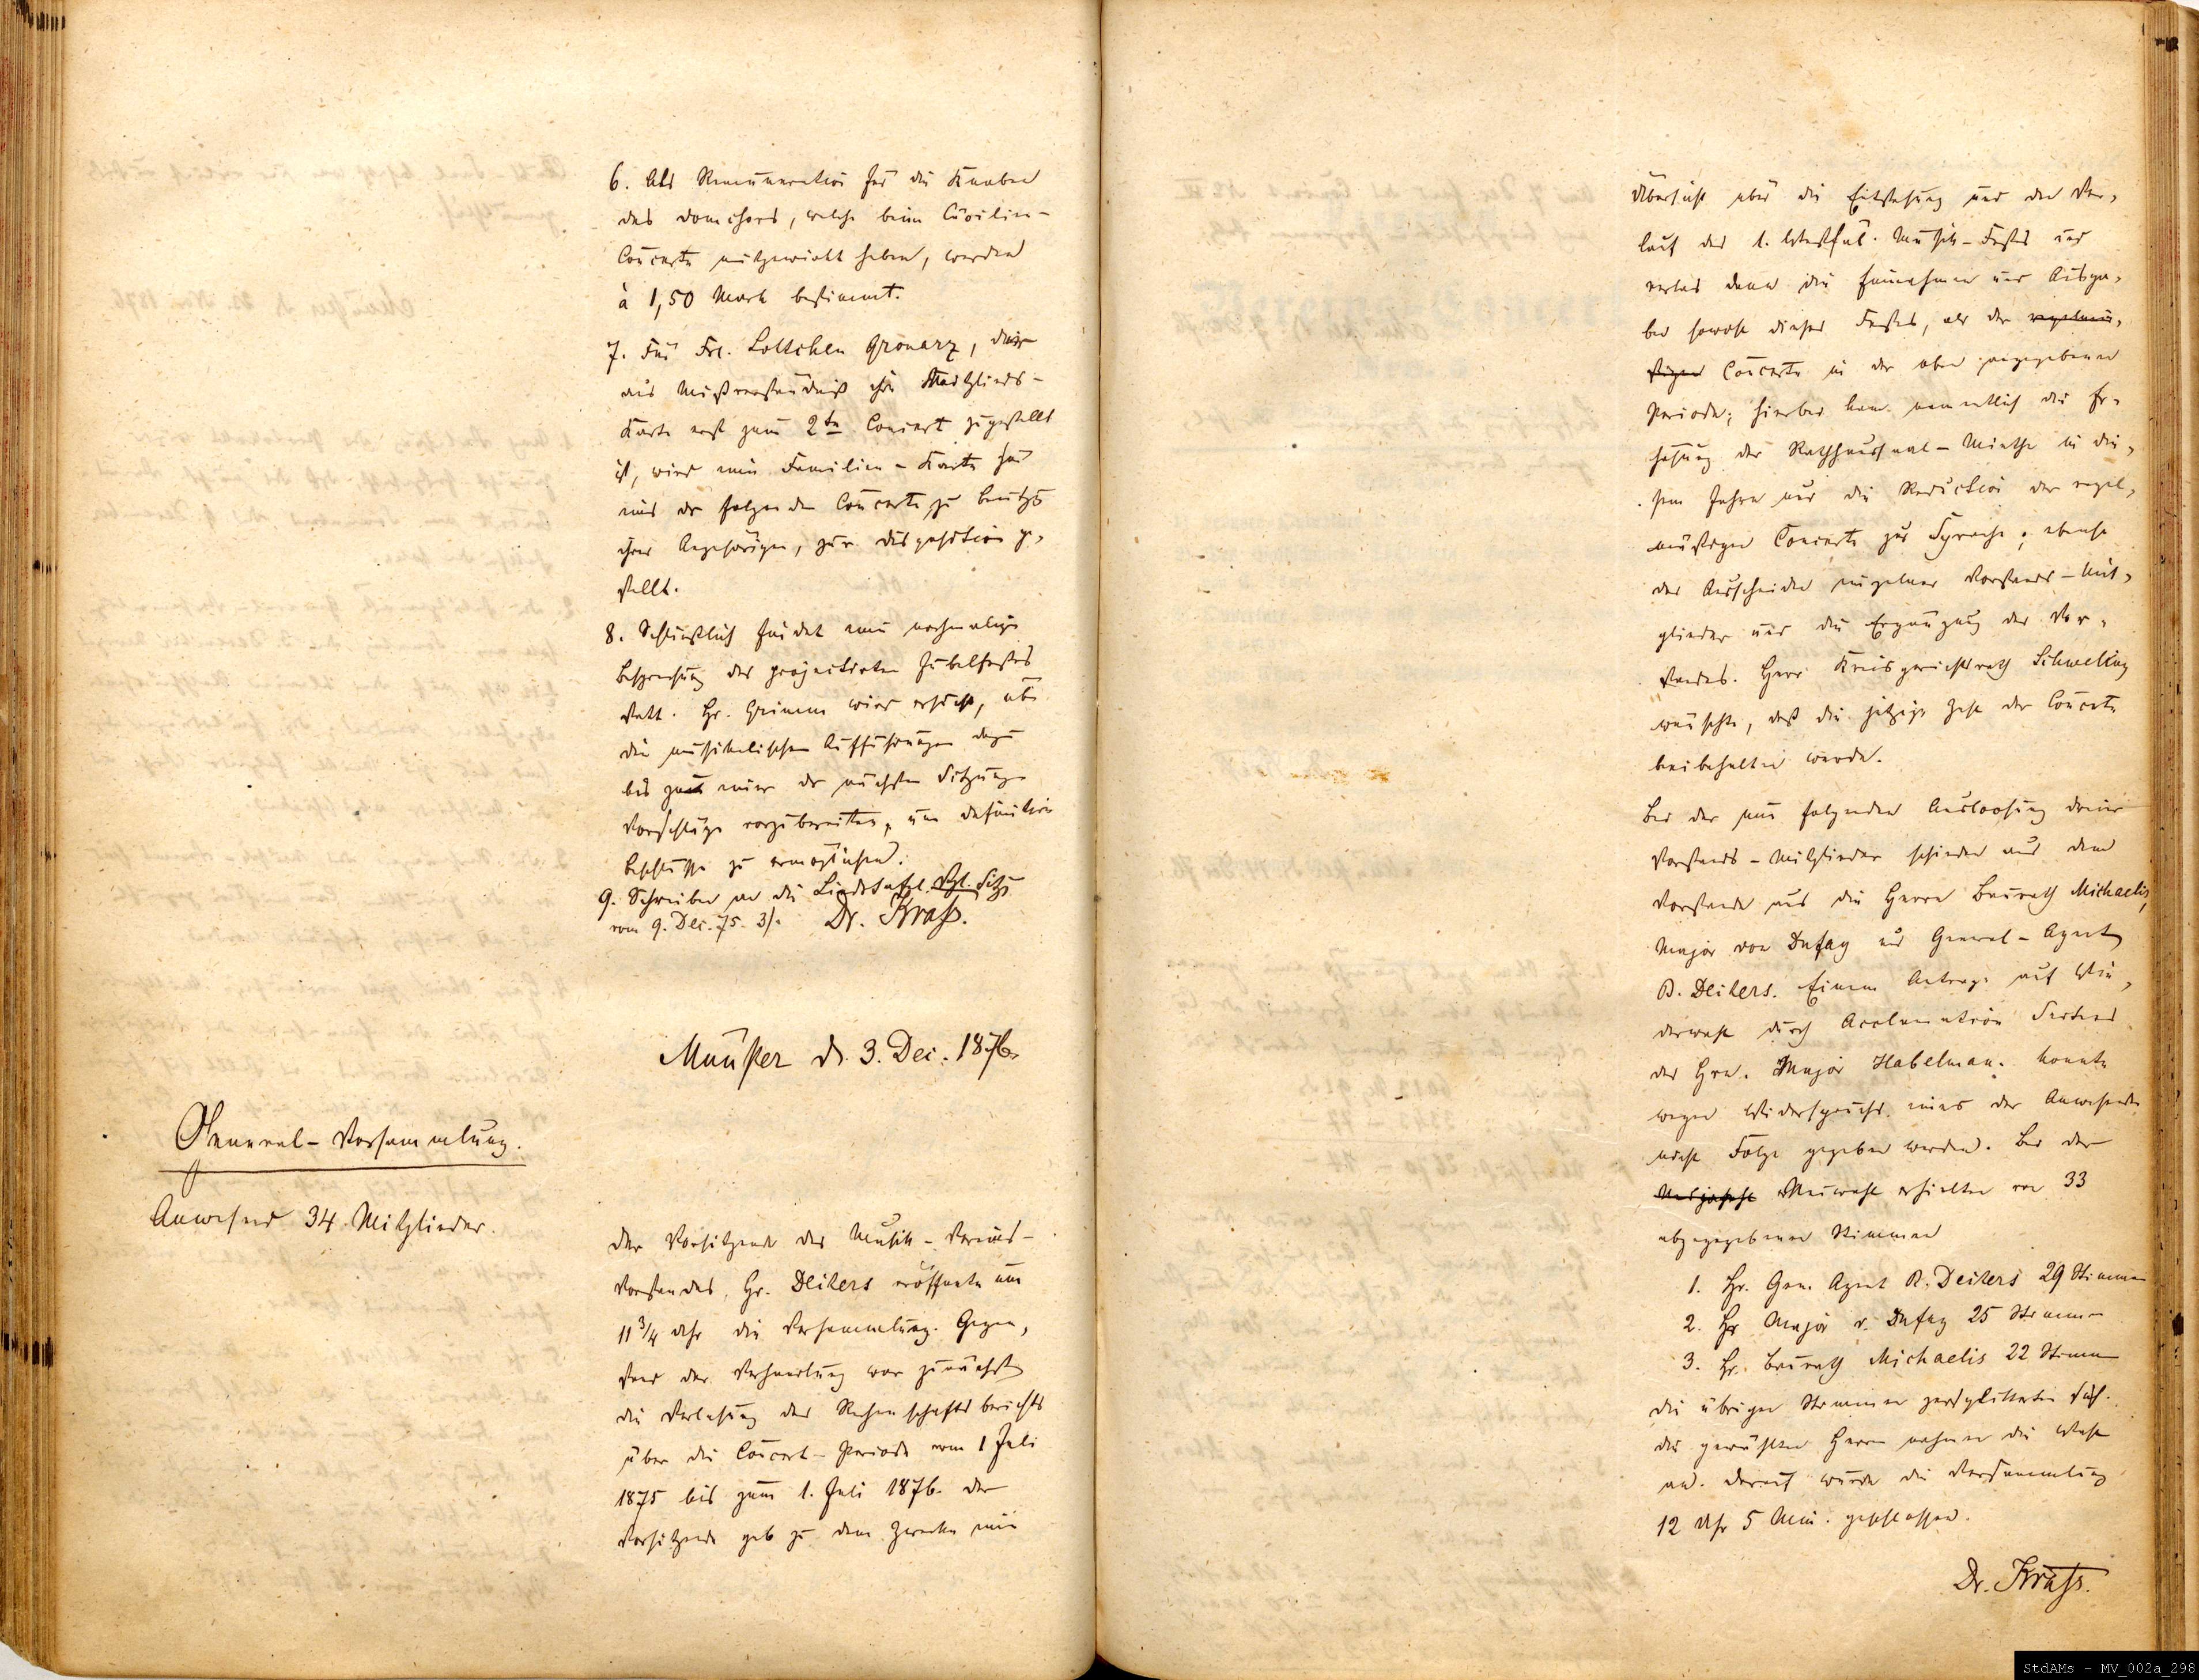 6. Als Remuneration für die Knaben
des Domchors, welche beim Cäcilien-
Concerte mitgewirkt haben, werden
à 1,50 Mark bestimmt.
7. Für Frl. Lottchen Gronarz, der
aus Mißverständniß ihre Mitglieds-
Karte erst zum 2ten Concert zugestellt
ist, wird eine Familien-Karte für
eins der folgenden Concerte zu
ihrer Angehörigen, zur Disposition ge-
stellt.
8. Schließlich findet eine nochmalige
Besprechung des projectirten Jubelfestes
statt. Hr. Grimm wird ersucht,
die musikalischen Aufführungen dazu
bis zu einer der nächsten Sitzungen
Vorschläge vorzubereiten, um definitive
Beschlüsse zu ermöglichen.
9. Schreiben an die Liedertafel. Vgl. Sitzg
vom 9. Dec. 75. 3). Dr. Krass.
Münster d. 3. Dec. 1876.
General-Versammlung.
Anwesend 34 Mitglieder.
Der Vorsitzende des Musik-Vereins-
Vorstandes, Hr. Deiters eröffnete um
11 3/4 Uhr die Versammlung. Gegen-
stand der Verhandlung war zunächst
die Verlesung des Rechenschaftsberichts
über die Concert-Periode vom 1 Juli
1875 bis zum 1. Juli 1876. Der
Vorsitzende gab zu dem Zwecke eine
Übersicht über die Entstehung und den Ver-
lauf des 1. Westfäl. Musik-Festes und
verlas dann die Einnahmen und Ausga-
ben sowohl dieses Festes, als der regelmä-
ßigen Concerte in der oben angegebenen
Periode; hierbei kam namentlich die Er-
höhung der Rathhaussaal-Miethe in die-
sem Jahre und die Reduction der regel-
mäßigen Concerte zur Sprache; ebenso
das Ausscheiden einzelner Vorstands-Mit-
glieder und die Ergänzung des Vor-
standes. Herr Kreisgerichtsrath Schwelling
wünschte, daß die jetzige Zahl der Concerte
beibehalten werde.
Bei der nun folgenden Ausloosung dreier
Vorstands-Mitglieder schieden aus dem
Vorstande aus die Herrn Baurath Michaelis,
Major von Dufay und General-Agent
B. Deiters. Einem Antrage auf Wie-
derwahl durch Acclamation Seitens
des Hrn. Major Habelman. konnte
wegen Widerspruchs eines der Anwesenden
nicht Folge gegeben werden. Bei der
Neuwahl erhielten von 33
abgegebenen Stimmen
1. Hr. Gen. Agent B. Deiters 29 Stimmen
2. Hr Major v. Dufay 25 Stimmen
3. Hr. Baurath Michaelis 22 Stimmen
die übrigen Stimmen zersplitterten sich.
Die gewählten Herrn nahmen die Wahl
an. Darauf wurde die Versammlung
12 Uhr 5 Min. geschlossen.
Dr. Krass.
StdAMs - MV_002a_298